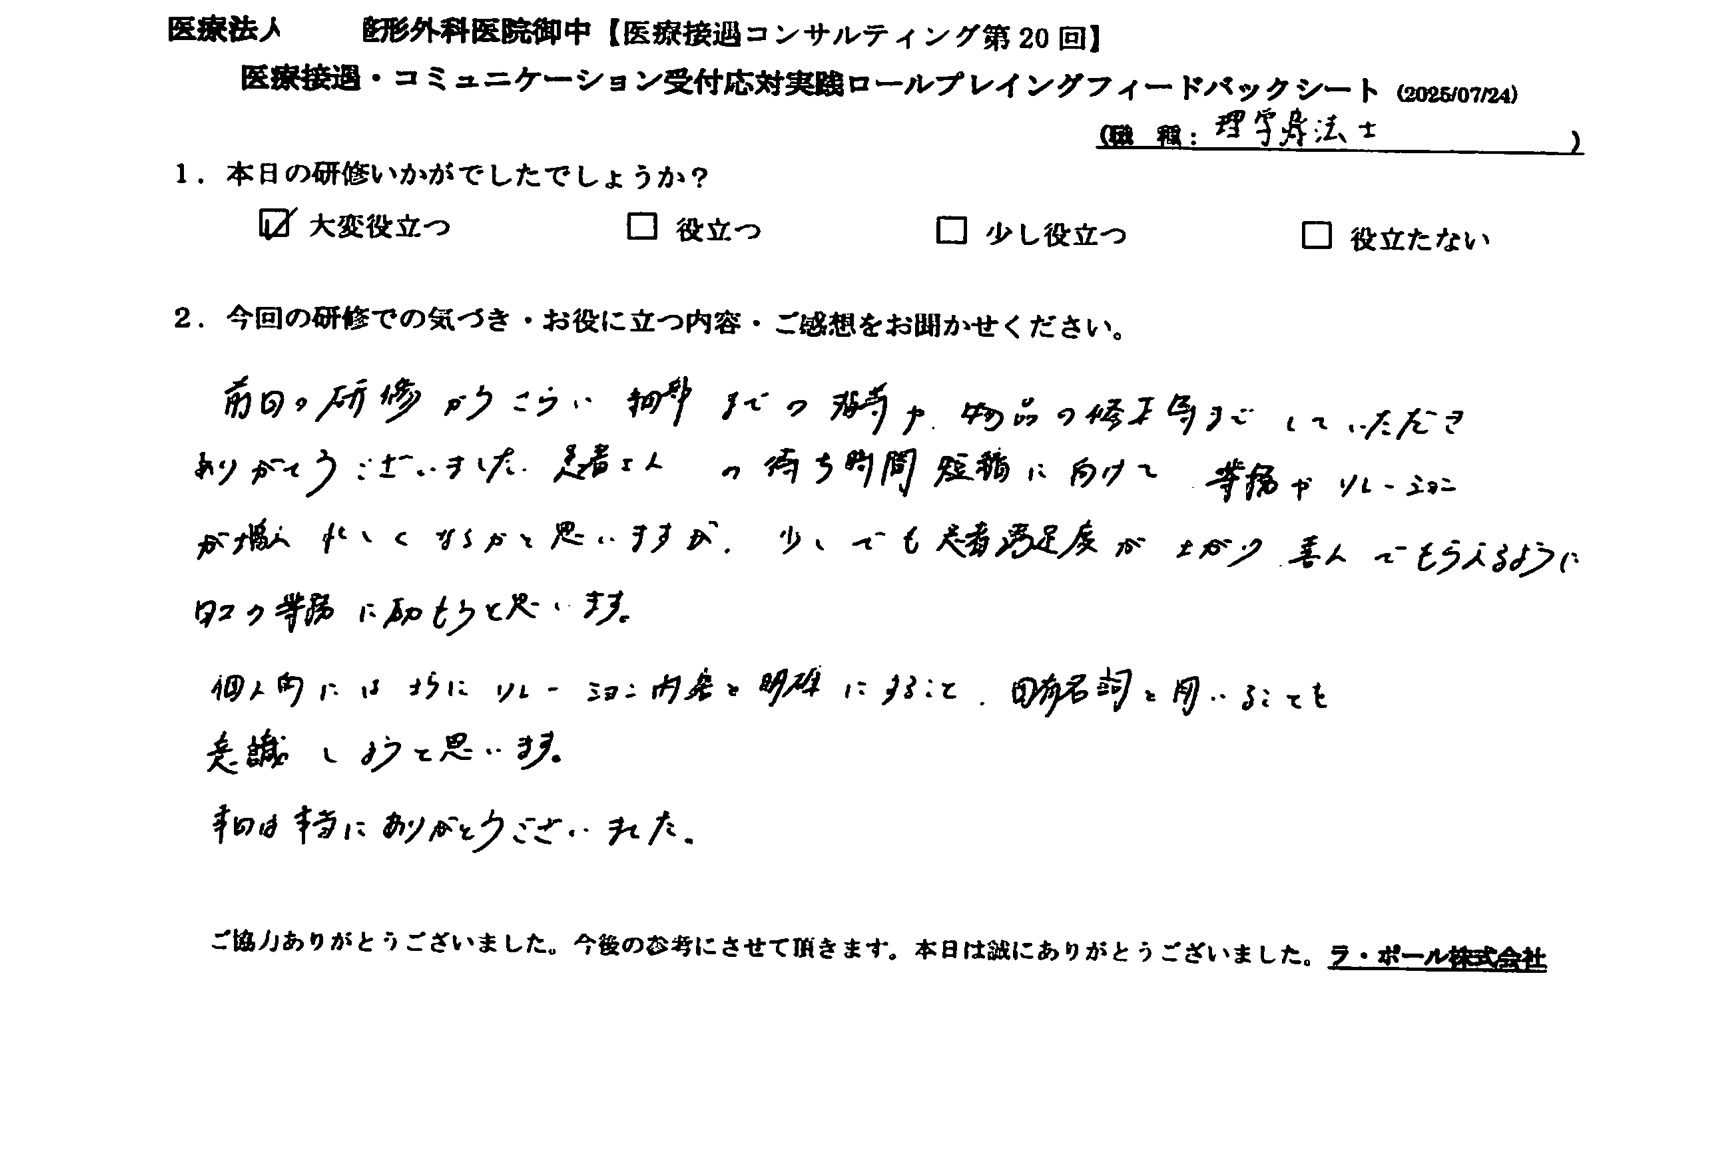 医療法人 整形外科医院御中【医療接遇コンサルティング第20回】
医療接遇・コミュニケーション受付応対実践ロールプレイングフィードバックシート (2025/07/24)
(職 種: 理学療法士 )
1. 本日の研修いかがでしたでしょうか?
☑ 大変役立つ □ 役立つ □ 少し役立つ □ 役立たない
2. 今回の研修での気づき・お役に立つ内容・ご感想をお聞かせください。
前回の研修から 細部までの や、物品の修正等までしていただき
ありがとうございました。患者さんの待ち時間短縮に向けて 業務やリレーション
が増え 忙しくなるかと思いますが、少しでも患者満足度が上がり喜んでもらえるように
日々の業務に励もうと思います。
個人的にはさらにリレーション内容を明確にすること、固有名詞を用いることを
意識しようと思います。
本日は本当にありがとうございました。
ご協力ありがとうございました。今後の参考にさせて頂きます。本日は誠にありがとうございました。ラ・ポール株式会社